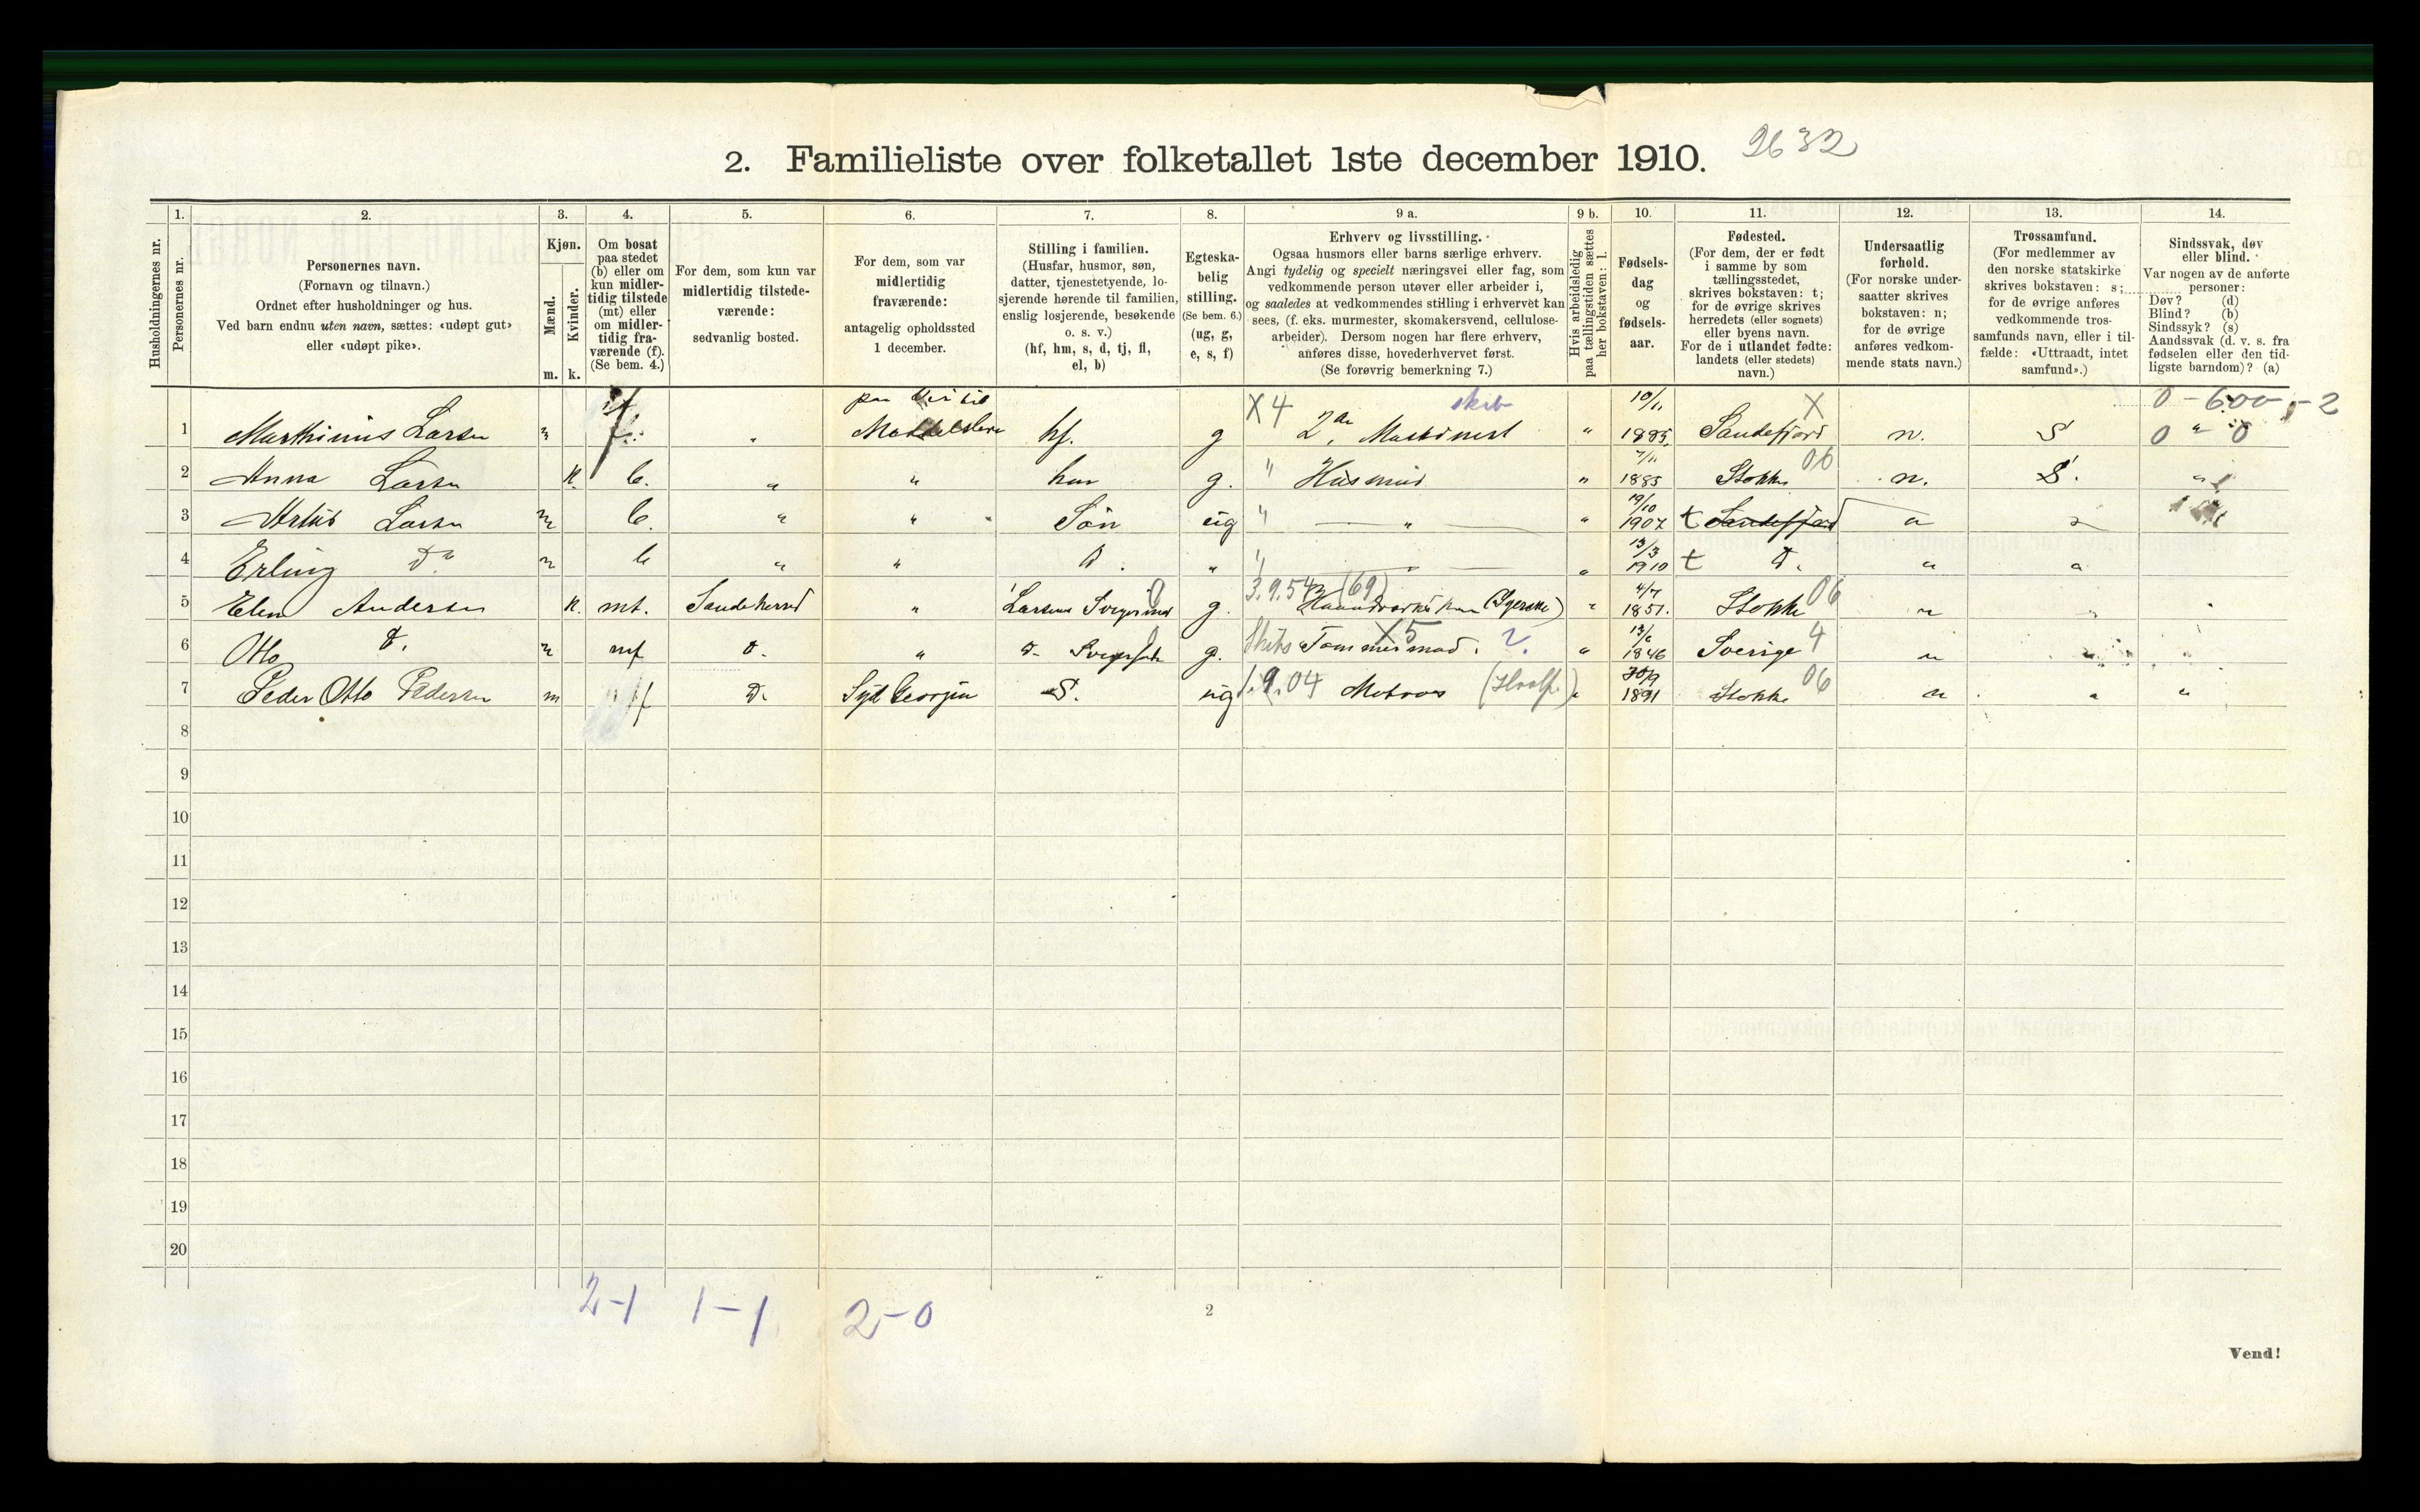 2. Familieliste over folketallet 1ste december 1910. 2632
Husholdningernes nr.
1.
Personernes nr.
2.
Personernes navn.
(Fornavn og tilnavn.)
Ordnet efter husholdninger og hus.
Ved barn endnu uten navn, sættes: «udøpt gut»
eller «udøpt pike».
3.
Kjøn.
Mænd.
Kvinder.
m. k.
4.
Om bosat
paa stedet
(b) eller om
kun midler-
tidig tilstede
(mt) eller
om midler-
tidig fra-
værende (f).
(Se bem. 4.)
5.
For dem, som kun var
midlertidig tilstede-
værende:
sedvanlig bosted.
6.
For dem, som var
midlertidig
fraværende:
antagelig opholdssted
1 december.
7.
Stilling i familien.
(Husfar, husmor, søn,
datter, tjenestetyende, lo-
sjerende hørende til familien,
enslig losjerende, besøkende
o. s. v.)
(hf, hm, s, d, tj, fl,
el, b)
8.
Egteska-
belig
stilling.
(Se bem. 6.)
(ug, g,
e, s, f)
9 a.
Erhverv og livsstilling.
Ogsaa husmors eller barns særlige erhverv.
Angi tydelig og specielt næringsvei eller fag, som
vedkommende person utøver eller arbeider i,
og saaledes at vedkommendes stilling i erhvervet kan
sees, (f. eks. murmester, skomakersvend, cellulose-
arbeider). Dersom nogen har flere erhverv,
anføres disse, hovederhvervet først.
(Se forøvrig bemerkning 7.)
9 b.
Hvis arbeidsledig
paa tællingstiden sættes
her bokstaven: l.
10.
Fødsels-
dag
og
fødsels-
aar.
11.
Fødested.
(For dem, der er født
i samme by som
tællingsstedet,
skrives bokstaven: t;
for de øvrige skrives
herredets (eller sognets)
eller byens navn.
For de i utlandet fødte:
landets (eller stedets)
navn.)
12.
Undersaatlig
forhold.
(For norske under-
saatter skrives
bokstaven: n;
for de øvrige
anføres vedkom-
mende stats navn.)
13.
Trossamfund.
(For medlemmer av
den norske statskirke
skrives bokstaven: s;
for de øvrige anføres
vedkommende tros-
samfunds navn, eller i til-
fælde: «Uttraadt, intet
samfund».)
14.
Sindssvak, døv
eller blind.
Var nogen av de anførte
personer:
Døv? (d)
Blind? (b)
Sindssyk? (s)
Aandssvak (d. v. s. fra
fødselen eller den tid-
ligste barndom)? (a)
1 Marthinius Larsen m f. hf. g X4 2den Maskinist " 10/11 Sandefjord X n. S 0-600-2 0 " 0
2 Anna Larsen k. b. " " hm g. " Husmor " 7/11 1885 Stokke 06 n. S.
3 Larsen m b. " " Søn ug " " " 19/10 1907 t Sandefjord "
4 Erling Do m b " " D. " " " 13/3 1910 t D. " "
5 Elen Andersen k. mt. Sandeherred " Larsens Svigermor g. 3.9.54 (69) " 4/7 1851. Stokke 06 "
6 Otto D. m mt D. " D- g. Tømmermand. X5 2. " 1846 Sverige 4 "
7 Peder Otto Pedersen m f D. Syd Georgien S. ug 1.9.04 Matros (Hvalf.) " 30/9 1891 Stokke 06 " " "
8
9
10
11
12
13
14
15
16
17
18
19
20
2-1 1-1 2-0
2
Vend!